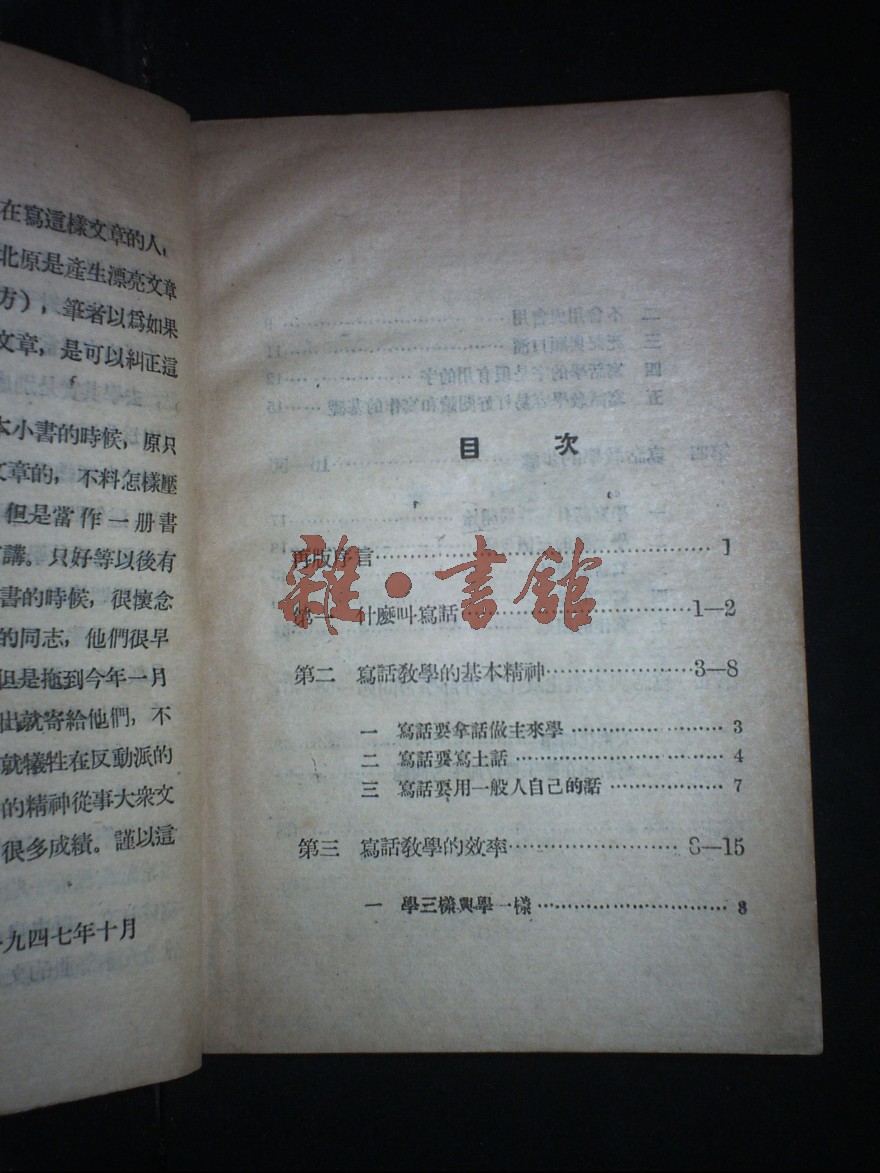 在寫這樣文章的人,
北原是產生漂亮文章
方),筆者以爲如果
文章,是可以糾正這
本小書的時候,原只
文章的,不料怎樣壓
但是當作一册書
講。只好等以後有
書的時候,很懷念
的同志,他們很早
但是拖到今年一月
出就寄給他們,不
就犧牲在反動派的
的精神從事大衆文
很多成績。謹以這
一九四七年十月
目 次
再版序言…………1
第一 什麼叫寫話…………1—2
第二 寫話敎學的基本精神…………3—8
一 寫話要拿話做主來學…………3
二 寫話要寫土話…………4
三 寫話要用一般人自己的話…………7
第三 寫話敎學的效率…………8—15
一 學三樣與學一樣…………8
雜·書館